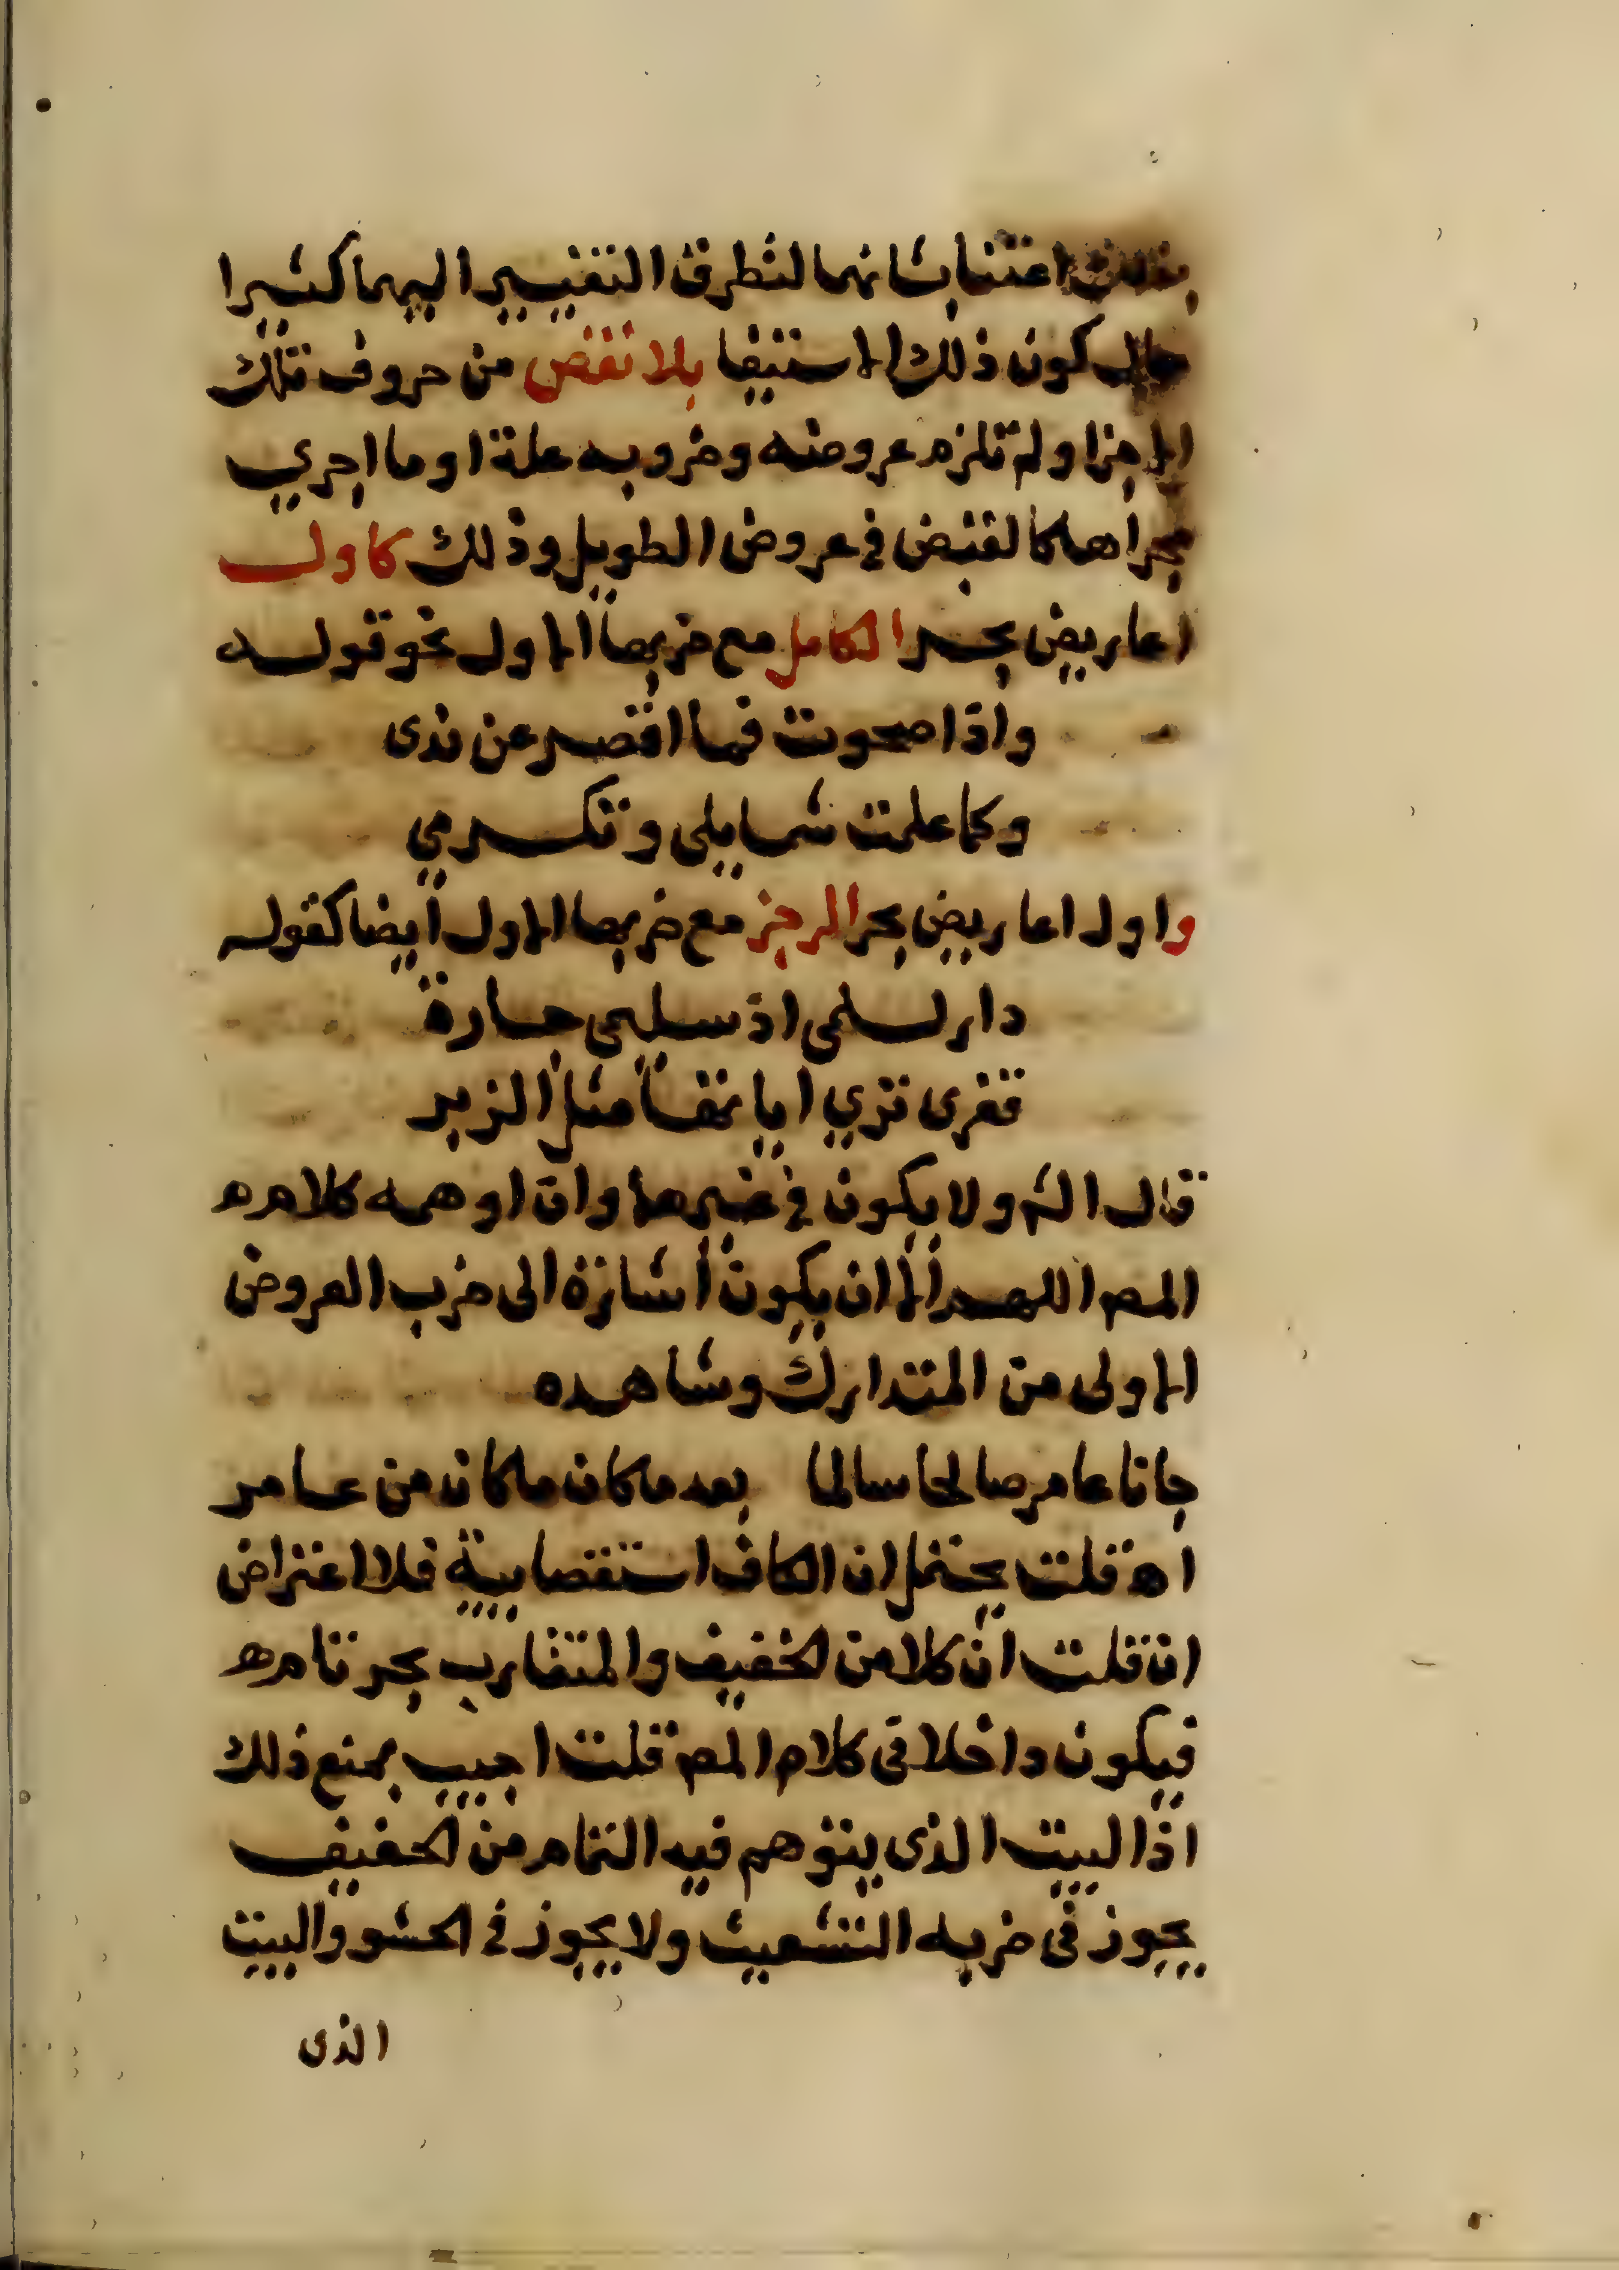 اعتنا بشانهما لتطرق التغيير اليهما كثيرا
حال كون ذلك الاستيفا بلا نقص من حروف تلك
الاجزا ولم تلزم عروضه وضروبه علة او ما اجري
مجراها كالقبض في عروض الطويل وذلك كاول
اعاريض بحر الكامل مع ضربها الاول نحو قوله
واذا صحوت فما اقصر عن ندى
وكما علمت شمايلي وتكرمي
واول اعاريض بحر الرجز مع ضربها الاول ايضا كقوله
دار لسلمى اذ سليمى جارة
قفرى تري اياتها مثل الزبر
قال الش ولا يكون في غيرهما وان اوهمه كلامه
المص اللهم الا ان يكون اشارة الى ضرب العروض
الاولى من المتدارك وشاهده
جانا عامر صالحا سالما بعد ما كان ما كان من عامر
اه قلت يحتمل ان الكاف استقصايية فلا اعتراض
ان قلت ان كلا من الخفيف والمتقارب بحر تام
فيكون داخلا في كلام المص قلت اجيب بمنع ذلك
اذ البيت الذى يتوهم فيه التمام من الخفيف
يجوز في ضربه التشعيث ولا يجوز في الحشو والبيت
الذى